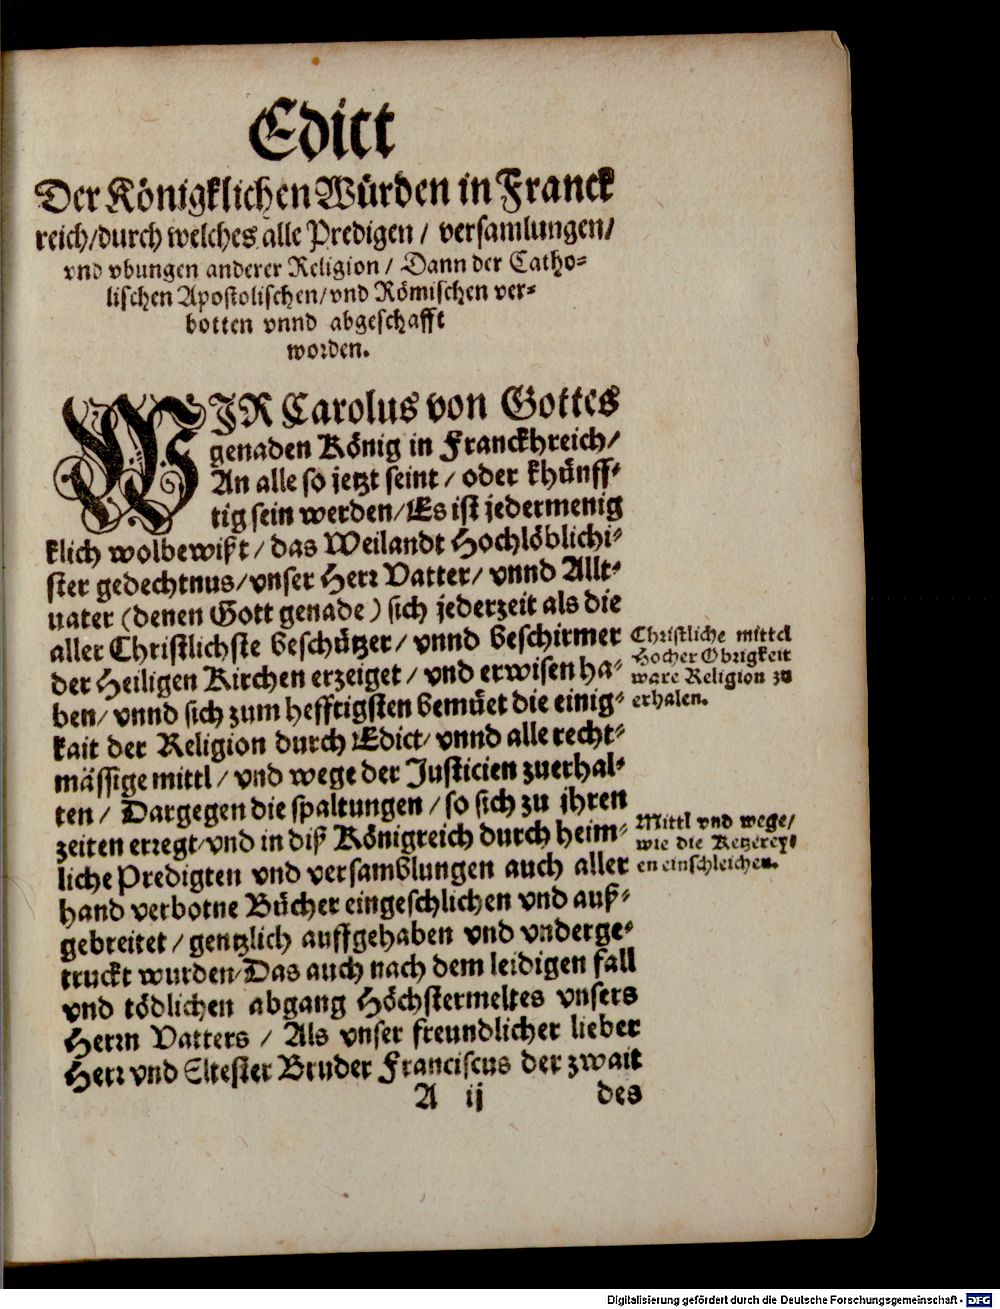 Edict
Der Königklichen Würden in Franck
reich/durch welches alle Predigen / versamlungen/
vnd vbungen anderer Religion / Dann der Catho-
lischen Apostolischen/vnd Römischen ver-
botten vnnd abgeschafft
worden.
WIR Carolus von Gottes
genaden König in Franckhreich/
An alle so jetzt seint / oder khünff-
tig sein werden/Es ist jedermenig
klich wolbewißt / das Weilandt Hochlöblichi-
ster gedechtnus/vnser Herr Vatter/ vnnd Allt-
uater (denen Gott genade) sich jederzeit als die
aller Christlichste beschützer / vnnd beschirmer
der Heiligen Kirchen erzeiget / vnd erwisen ha-
ben/ vnnd sich zum hefftigsten bemüet die einig-
kait der Religion durch Edict/ vnnd alle recht-
mässige mittl / vnd wege der Justicien zuerhal-
ten / Dargegen die spaltungen / so sich zu ihren
zeiten erregt/vnd in diß Königreich durch heim-
liche Predigten vnd versamblungen auch aller
hand verbotne Bücher eingeschlichen vnd auß-
gebreitet / gentzlich auffgehaben vnd vnderge-
truckt wurden/Das auch nach dem leidigen fall
vnd tödlichen abgang Höchstermeltes vnsers
Herrn Vatters / Als vnser freundlicher lieber
Herr vnd Eltester Bruder Franciscus der zwait
A ij des
Christliche mittel
Hocher Obrigkeit
ware Religion zu
erhalen.
Mittl vnd wege/
wie die Ketzerey-
en einschleichen.
Digitalisierung gefördert durch die Deutsche Forschungsgemeinschaft - DFG